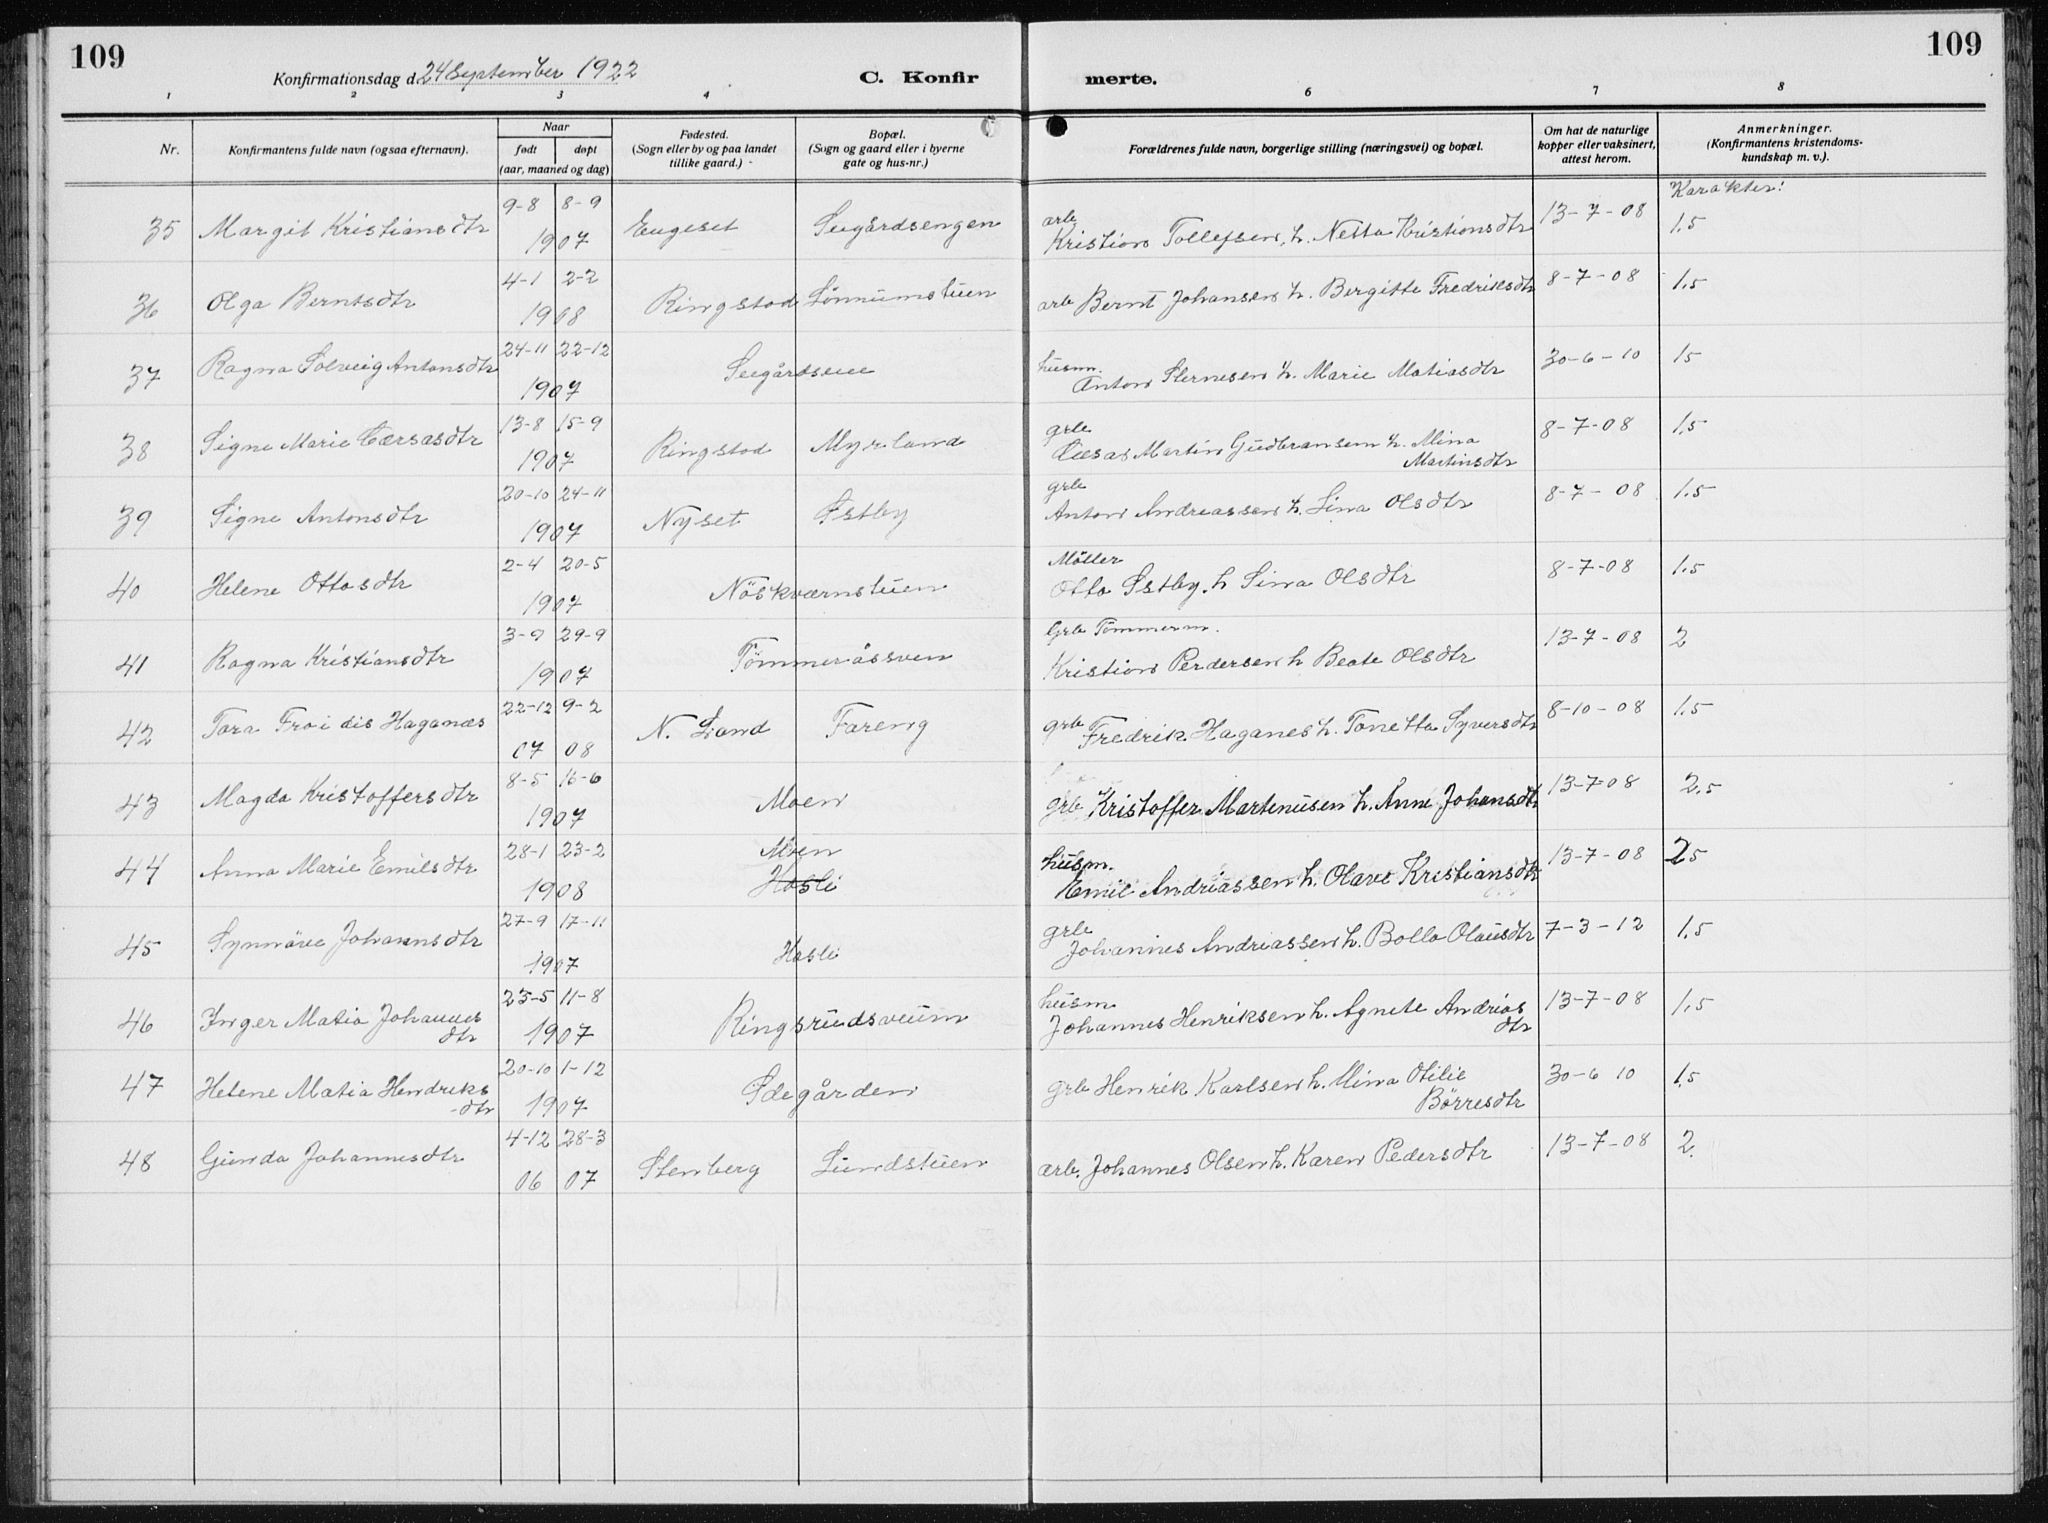 109
109
Konfirmationsdag d. 24 September 1922
C. Konfir merte.
1 2 3 4 6 7 8
Nr.
Konfirmantens fulde navn (ogsaa efternavn).
Naar
født døpt
(aar, maaned og dag)
Fødested.
(Sogn eller by og paa landet
tillike gaard.)
Bopæl.
(Sogn og gaard eller i byerne
gate og hus-nr.)
Forældrenes fulde navn, borgerlige stilling (næringsvei) og bopæl.
Om hat de naturlige
kopper eller vaksinert,
attest herom.
Anmerkninger.
(Konfirmantens kristendoms-
kundskap m. v.).
Karakter:
35 Margit Kristiansdtr 9-8 8-9 1907 Engeset Seegårdsengen arb Kristian Tollefsen, h. Netta Kristiansdtr 13-7-08 1.5
36 Olga Berntsdtr 4-1 2-2 1908 Ringstad Lönnumstuen arb Bernt Johansen h. Bergitte Fredriksdtr 8-7-08 1.5
37 Ragna Solveig Antonsdtr 24-11 22-12 1907 husm. Anton Sternesen h. Marie Matiasdtr 30-6-10 15
38 Signe Marie Cæsasdtr 13-8 15-9 1907 Ringstad Myrland grb Cæsar Martin Gudbransen h. Mina
Martinsdtr 8-7-08 1.5
39 Signe Antonsdtr 20-10 24-11 1907 Nyset Østby grb Anton Andreassen h. Lina Olsdtr 8-7-08 1.5
40 Helene Ottosdtr 2-4 20-5 1907 Nöskværnstuen Möller Otto Østby. h Sina Olsdtr 8-7-08 1.5
41 Ragna Kristiansdtr 3-9 29-9 1907 Tömmeråsveen Grb Tömmerm. Kristian Perdersen h Beate Olsdtr 13-7-08 2
42 Tora Froidis Haganæs 22-12 9-2 07 08 N. Land Fareng grb Fredrik Haganes h. Tonetta Syversdtr 8-10-08 1.5
43 Magda Kristoffersdtr 8-5 16-6 1907 Moen grb Kristoffer Martenusen h. Anne Johansdtr 13-7-08 2.5
44 Anna Marie Emilsdtr 28-1 23-2 1908 Moen
Hasli husm. Emil Andriassen h. Olave Kristiansdtr 13-7-08 25
45 Synnöve Johannsdtr 27-9 17-11 1907 Hasli grb Johannes Andriassen h. Bolla Olausdtr 7-3-12 1.5
46 Inger Matia Johannes
dtr 23-5 11-8 1907 Ringsrudsveum husm Johannes Henriksen h. Agnete Andrias
dtr 13-7-08 1.5
47 Helene Matia Hendriks
-dtr 20-10 1-12 1907 Ødegården grb Henrik Karlsen h. Mina Otilie
Börresdtr 30-6 10 1.5
48 Gunda Johannesdtr 4-12 28-3 06 07 Stenberg Lundstuen arb. Johannes Olsen h. Karen Pedersdtr 13-7-08 2.